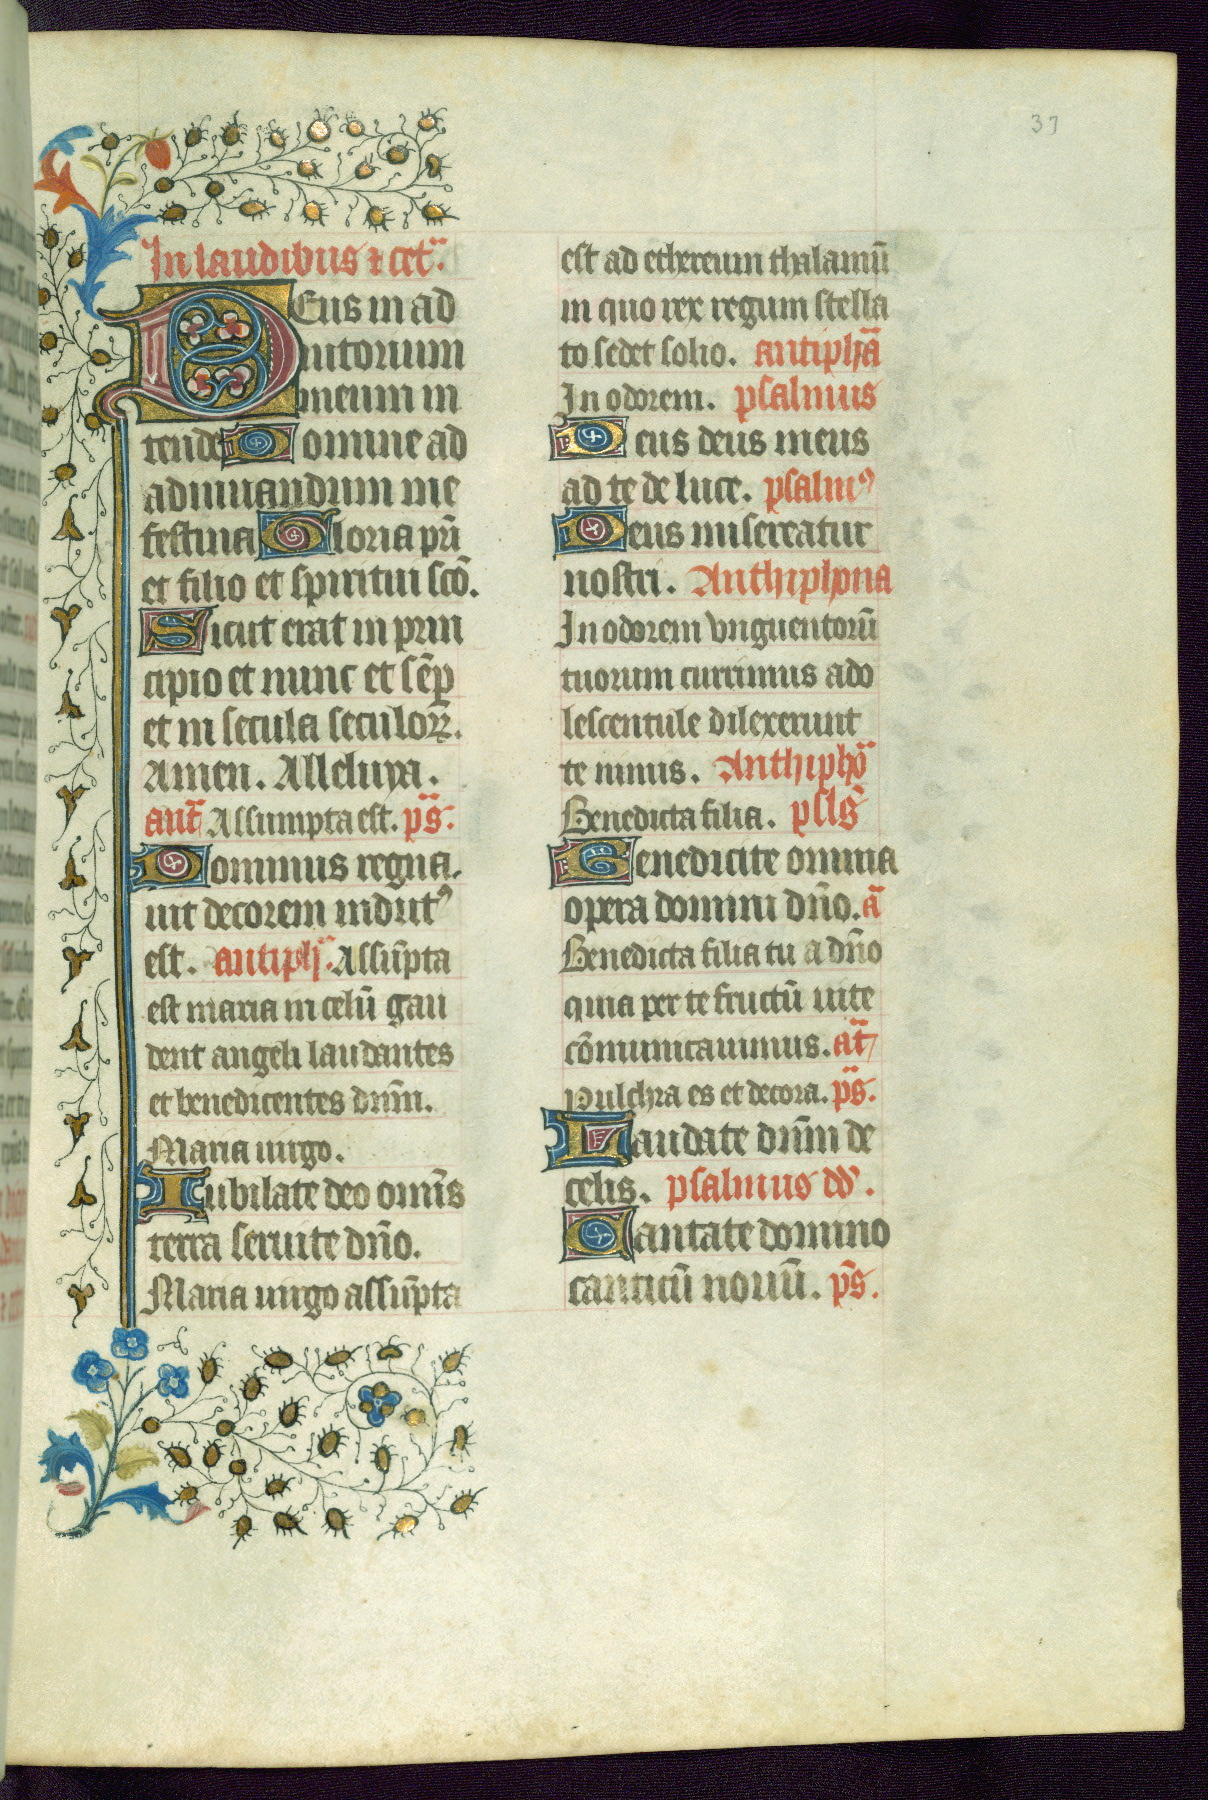 37
In laudibus ⁊ cet.
DEus in ad
iutorium
meum in
tende Domine ad
adiuuandum me
festina Gloria pr̄i
et filio et spiritui scō.
Sicut erat in prin
cipio et nunc et sēp
et in secula seculoꝝ.
Amen. Alleluya.
ant̄ Assumpta est. ps̄.
Dominus regna.
uit decorem indutꝰ
est. antiph. Assūpta
est maria in celū gau
dent angeli laudantes
et benedicentes dnm̄.
Maria uirgo.
Iubilate deo omīs
terra seruite dn̄o.
Maria uirgo assūpta
est ad ethereum thalamū
in quo rex regum stella
to sedet solio. antiphā
In odorem. psalmus
Deus deus meus
ad te de luce. psalmꝰ
Deus misereatur
nostri. Anthiphona
In odorem vnguentorū
tuorum currimus ado
lescentule dilexerunt
te nimis. Anthiphō
Benedicta filia. psls̄
Benedicite omnia
opera domini dn̄o. ā
Benedicta filia tu a dn̄o
quia per te fructū uite
cōmunicauimus. at̄
Pulchra es et decora. ps̄.
Laudate dnm̄ de
celis. psalmus dd̄.
Cantate domino
canticū nouū. ps̄.